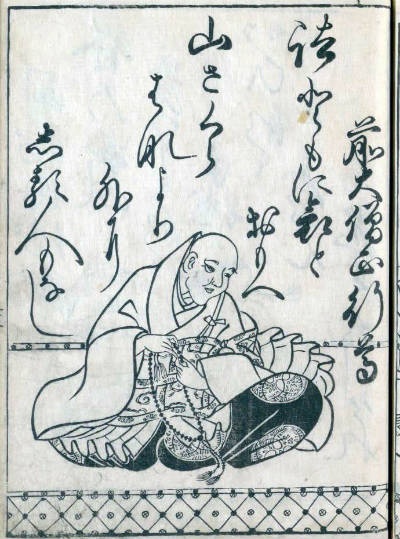 前大僧正行尊
諸ともに哀と
おもへ
山さくら
はなより
外に
しる人もなし